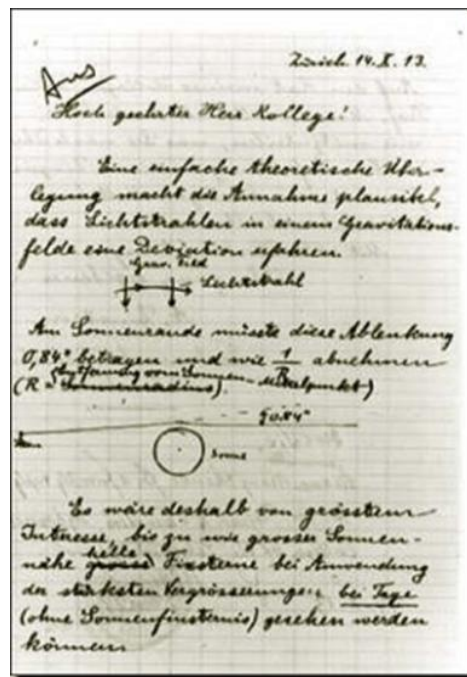 Aus
Zürich 14. X. 13.
Hoch geehrter Herr Kollege!
Eine einfache theoretische Über-
legung macht die Annahme plausibel,
dass Lichtstrahlen in einem Gravitations-
felde eine Deviation erfahren.
Grav. Feld
Lichtstrahl
Am Sonnenrande müsste diese Ablenkung
0,84" betragen und wie 1/R abnehmen
(R = Sonnenradius) Entfernung vom Sonnen-Mittelpunkt)
0.84"
Sonne
Es wäre deshalb von grösstem
Interesse, bis zu wie grosser Sonnen-
nähe grosse helle Fixsterne bei Anwendung
der stärksten Vergrösserungen bei Tage
(ohne Sonnenfinsternis) gesehen werden
können.